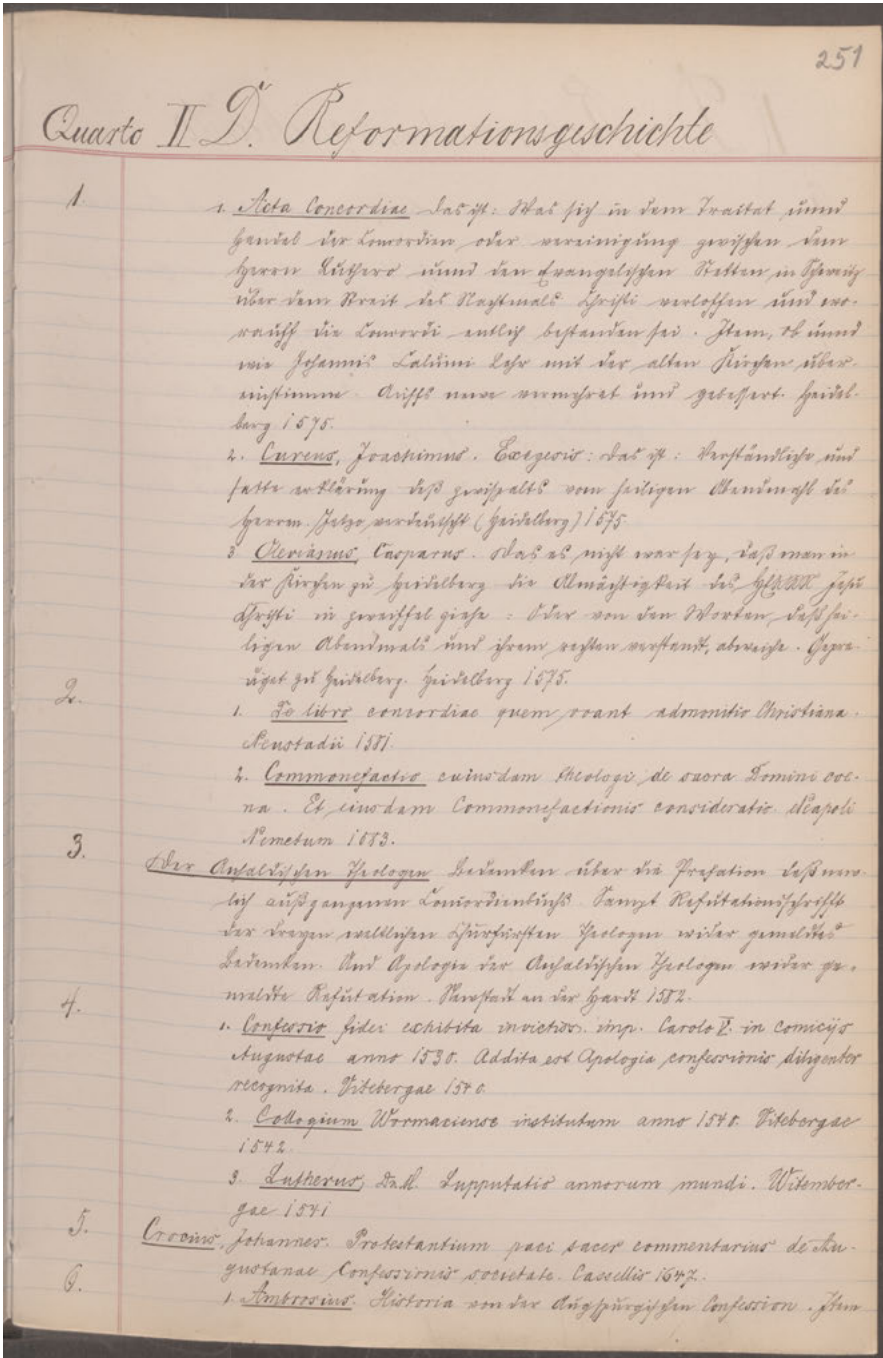 251
Quarto II D. Reformationsgeschichte
1. 1. Acta Concordiae das ist: Was sich in dem Tractat unnd
Handel der Concordien oder vereinigung zwischen dem
Herrn Luthero unnd den Evangelischen Stetten in Schweitz
über dem Streit des Nachtmals Christi verloffen und wo-
rauff die Concordi entlich bestanden sei. Item, ob unnd
wie Johannis Calvini Lehr mit der alten Kirchen über-
einstimme. Auffs newe vermehret und gebessert. Heidel-
berg 1575.
2. Cureus, Joachimus. Exegesis: das ist: Verständliche und
satte erklärung deß zwispalts vom heiligen Abendmahl des
Herrn. Jetzo verdeutscht (Heidelberg) 1575.
3 Olevianus, Casparus. Das es nicht war sey, daß man in
der Kirchen zu Heidelberg die Almächtigkeit des HERRN Jesu
Christi in zweiffel ziehe: Oder von den Worten, deß hei-
ligen Abendmals und ihrem rechten verstandt, abweiche. Gepre-
diget zu Heidelberg. Heidelberg 1575.
2. 1. De libro concordiae quem vocant admonitio Christiana.
Neustadii 1581.
2. Commonefactio cuiusdam theologi de sacra Domini coe-
na. Et eiusdem Commonefactionis consideratio. Neapoli
Nemetum 1583.
3. Der Anhaldischen Theologen Bedencken über die Prefation deß new-
lich außgangenen Concordienbuchs. Sampt Refutationsschrifft
der dreyen weltlichen Churfürsten Theologen wider gemeldtes
Bedencken. Und Apologie der Anhaldischen Theologen wider ge-
meldte Refutation. Newstadt an der Hardt 1582.
4. 1. Confessio fidei exhibita invictiss. imp. Carolo V. in comicijs
Augustae anno 1530. Addita est Apologia confessionis diligenter
recognita. Vitebergae 1540.
2. Colloquium Wormaciense institutum anno 1540. Vitebergae
1542.
3. Lutherus, D. M. Supputatio annorum mundi. Witember-
gae 1541
5. Crocius, Johannes. Protestantium paci sacer commentarius de Au-
gustanae Confessionis societate. Cassellis 1647.
6. 1. Ambrosius. Historia von der Augspurgischen Confession. Item